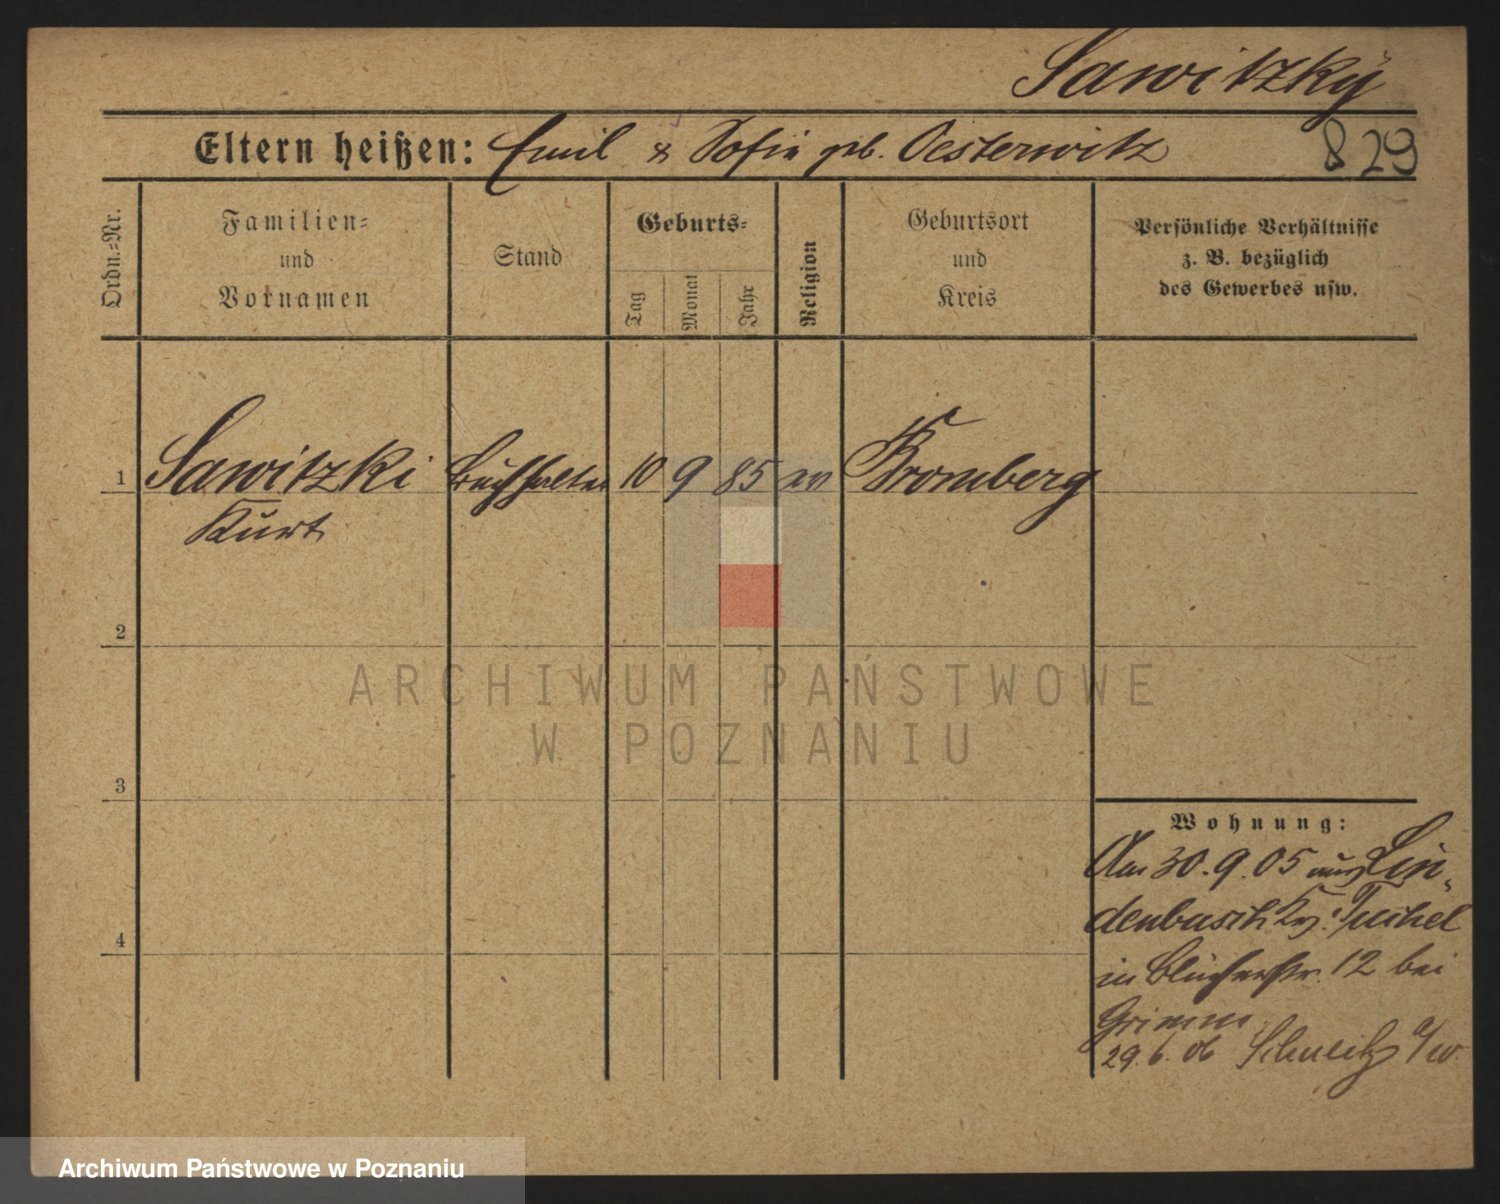 Sawitzky
Eltern heißen: Emil & Sofie geb. Oesterwitz
829
Ordn.-Nr.
Familien-
und
Vornamen
Stand
Geburts-
Tag
Monat
Jahr
Religion
Geburtsort
und
Kreis
Persönliche Verhältnisse
z. B. bezüglich
des Gewerbes usw.
1 Sawitzki Buchhalter 10 9 85 ev Bromberg
Kurt
2
3
4
Wohnung:
Am 30.9.05 aus Lin-
denbusch Kr. Tuchel
in Blücherstr. 12 bei
Grimm
29.6.06
ARCHIWUM PAŃSTWOWE
W POZNANIU
Archiwum Państwowe w Poznaniu